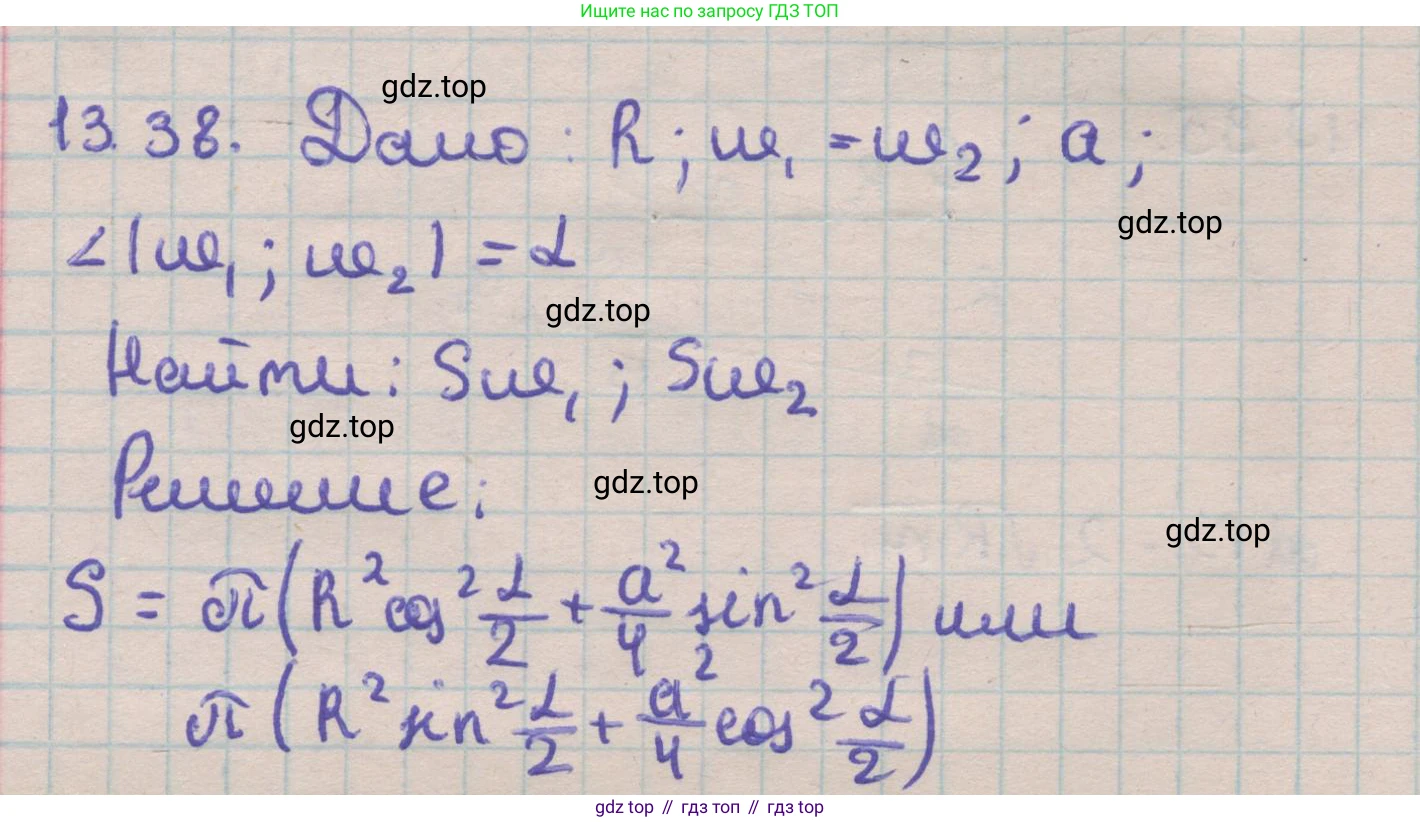 Ищите нас по запросу ГДЗ ТОП
gdz.top
13.38. Дано: R; ω₁ = ω₂; a;
gdz.top
∠(ω₁; ω₂) = α
gdz.top
Найти: Sω₁; Sω₂
gdz.top
Решение:
gdz.top
gdz.top
S = π(R² cos² α/2 + a²/4 sin² α/2) или
π(R² sin² α/2 + a²/4 cos² α/2)
gdz top // гдз топ // гдз top